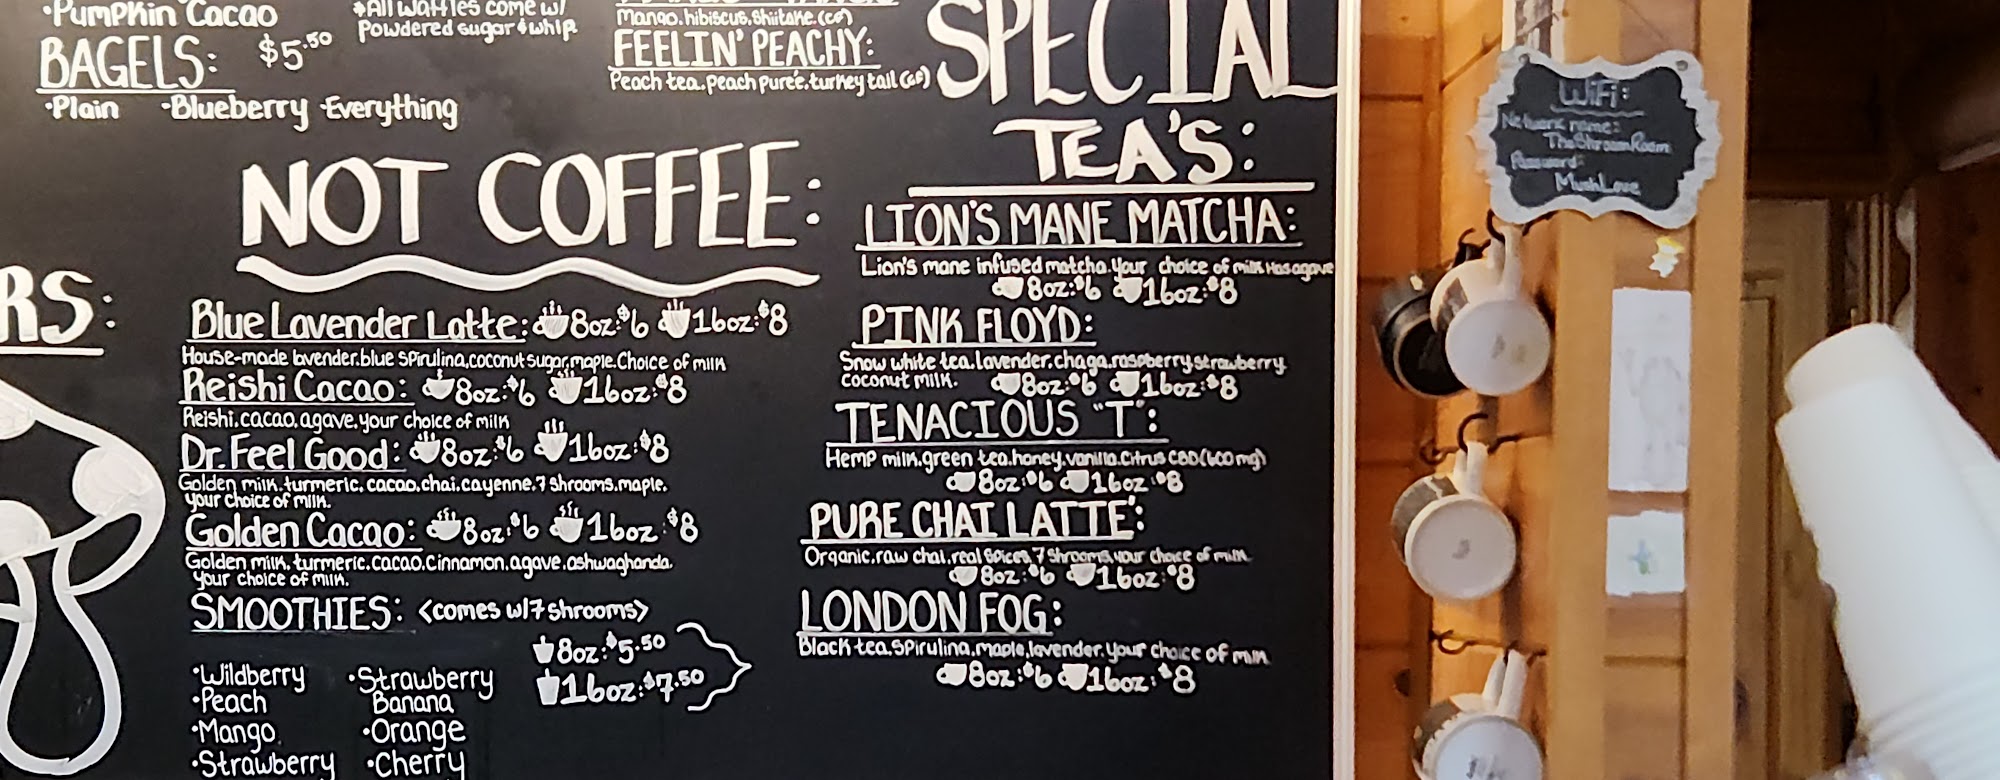 •Pumpkin Cacao
*All waffles come w/
Powdered sugar & whip
BAGELS: $5.50
•Plain •Blueberry •Everything
Mango.hibiscus.shiitake.(GF)
FEELIN' PEACHY:
Peach tea.peach pureé.turkey tail (GF)
NOT COFFEE:
RS:
Blue Lavender Latte: 8oz:$6 16oz:$8
House-made lavender.blue spirulina,coconut sugar,maple.Choice of milk
Reishi Cacao: 8oz:$6 16oz:$8
Reishi.cacao.agave.your choice of milk
Dr. Feel Good: 8oz:$6 16oz:$8
Golden milk.turmeric.cacao.chai.cayenne.7 shrooms.maple.
your choice of milk.
Golden Cacao: 8oz:$6 16oz:$8
Golden milk.turmeric.cacao.cinnamon.agave.ashwaghanda.
your choice of milk.
SMOOTHIES: <comes w/7 shrooms>
8oz:$5.50
16oz:$7.50
•Wildberry
•Peach
•Mango
•Strawberry
•Strawberry
Banana
•Orange
•Cherry
SPECIAL
TEA'S:
LION'S MANE MATCHA:
Lion's mane infused matcha.your choice of milk Has agave
8oz:$6 16oz:$8
PINK FLOYD:
Snow white tea.lavender.chaga.raspberry.strawberry
coconut milk. 8oz:$6 16oz:$8
TENACIOUS "T":
Hemp milk.green tea.honey.vanilla.citrus CBD(600mg)
8oz:$6 16oz:$8
PURE CHAI LATTE':
Organic.raw chai.real spices.7 shrooms.your choice of milk
8oz:$6 16oz:$8
LONDON FOG:
Black tea.spirulina.maple.lavender.your choice of milk
8oz:$6 16oz:$8
WiFi:
Network name:
TheShroomRoom
Password:
MushLove